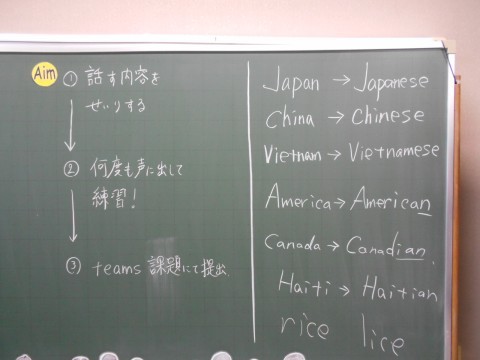 Aim ① 話す内容を
せいりする
② 何度も声に出して
練習!
③ teams 課題にて提出
Japan → Japanese
China → Chinese
Vietnam → Vietnamese
America → American
Canada → Canadian.
Haiti → Haitian
rice lice